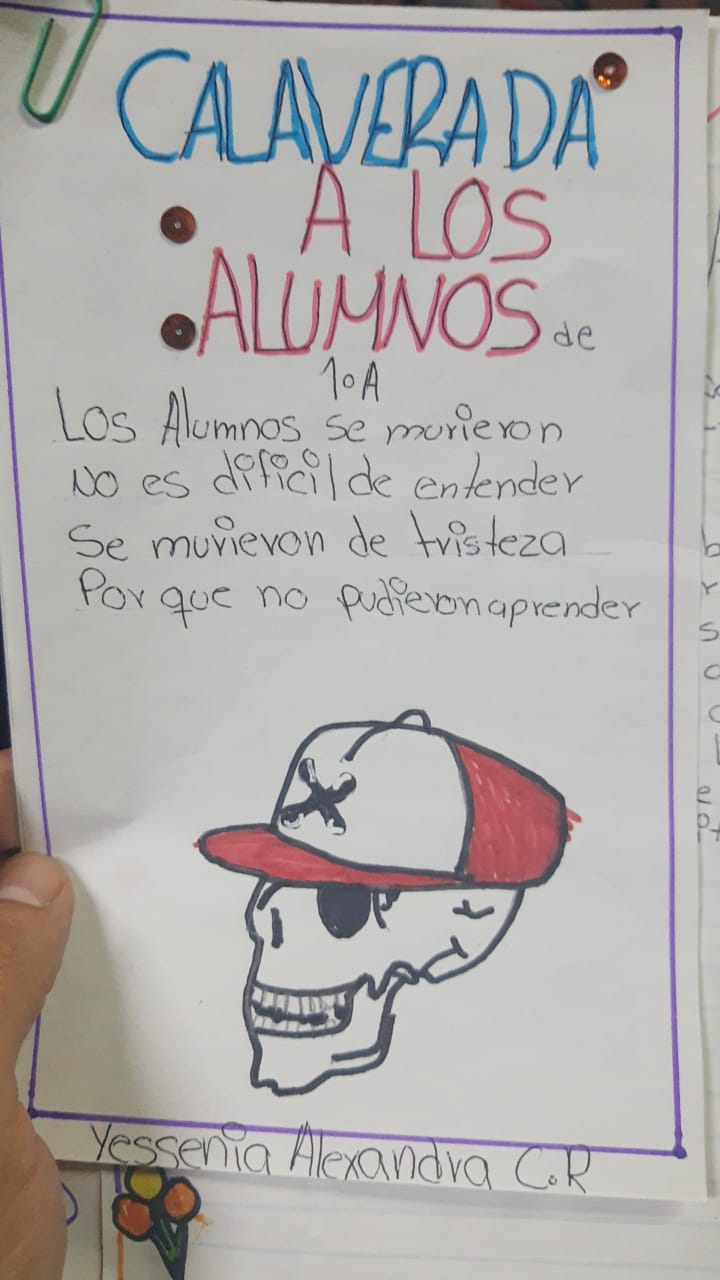 CALAVERADA
A LOS
ALUMNOS de
1°A
Los Alumnos se murieron
No es dificil de entender
Se murieron de tristeza
Por que no pudieron aprender
Yessenia Alexandra C.R